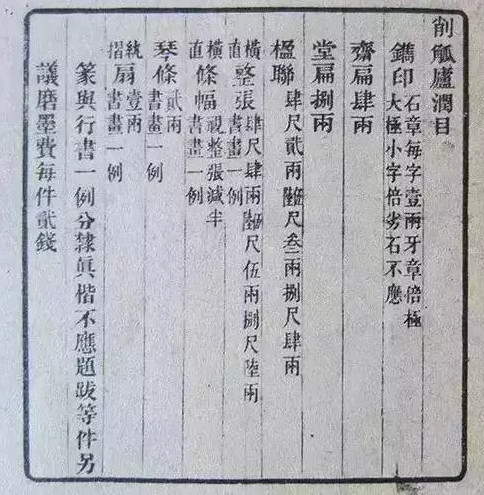 削觚廬潤目
鐫印
石章每字壹兩牙章倍極
大極小字倍劣石不應
齋扁肆兩
堂扁捌兩
楹聯 肆尺貳兩陸尺叁兩捌尺肆兩
橫直整張
肆尺肆兩陸尺伍兩捌尺陸兩
書畫一例
橫直條幅
視整張減半
書畫一例
琴條
貳兩
書畫一例
紈摺扇
壹兩
書畫一例
篆與行書一例分隸眞楷不應題跋等件另
議磨墨費每件貳錢